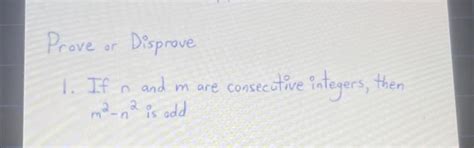 Prove or Disprove
1. If n and m are consecutive integers, then
m²-n² is odd